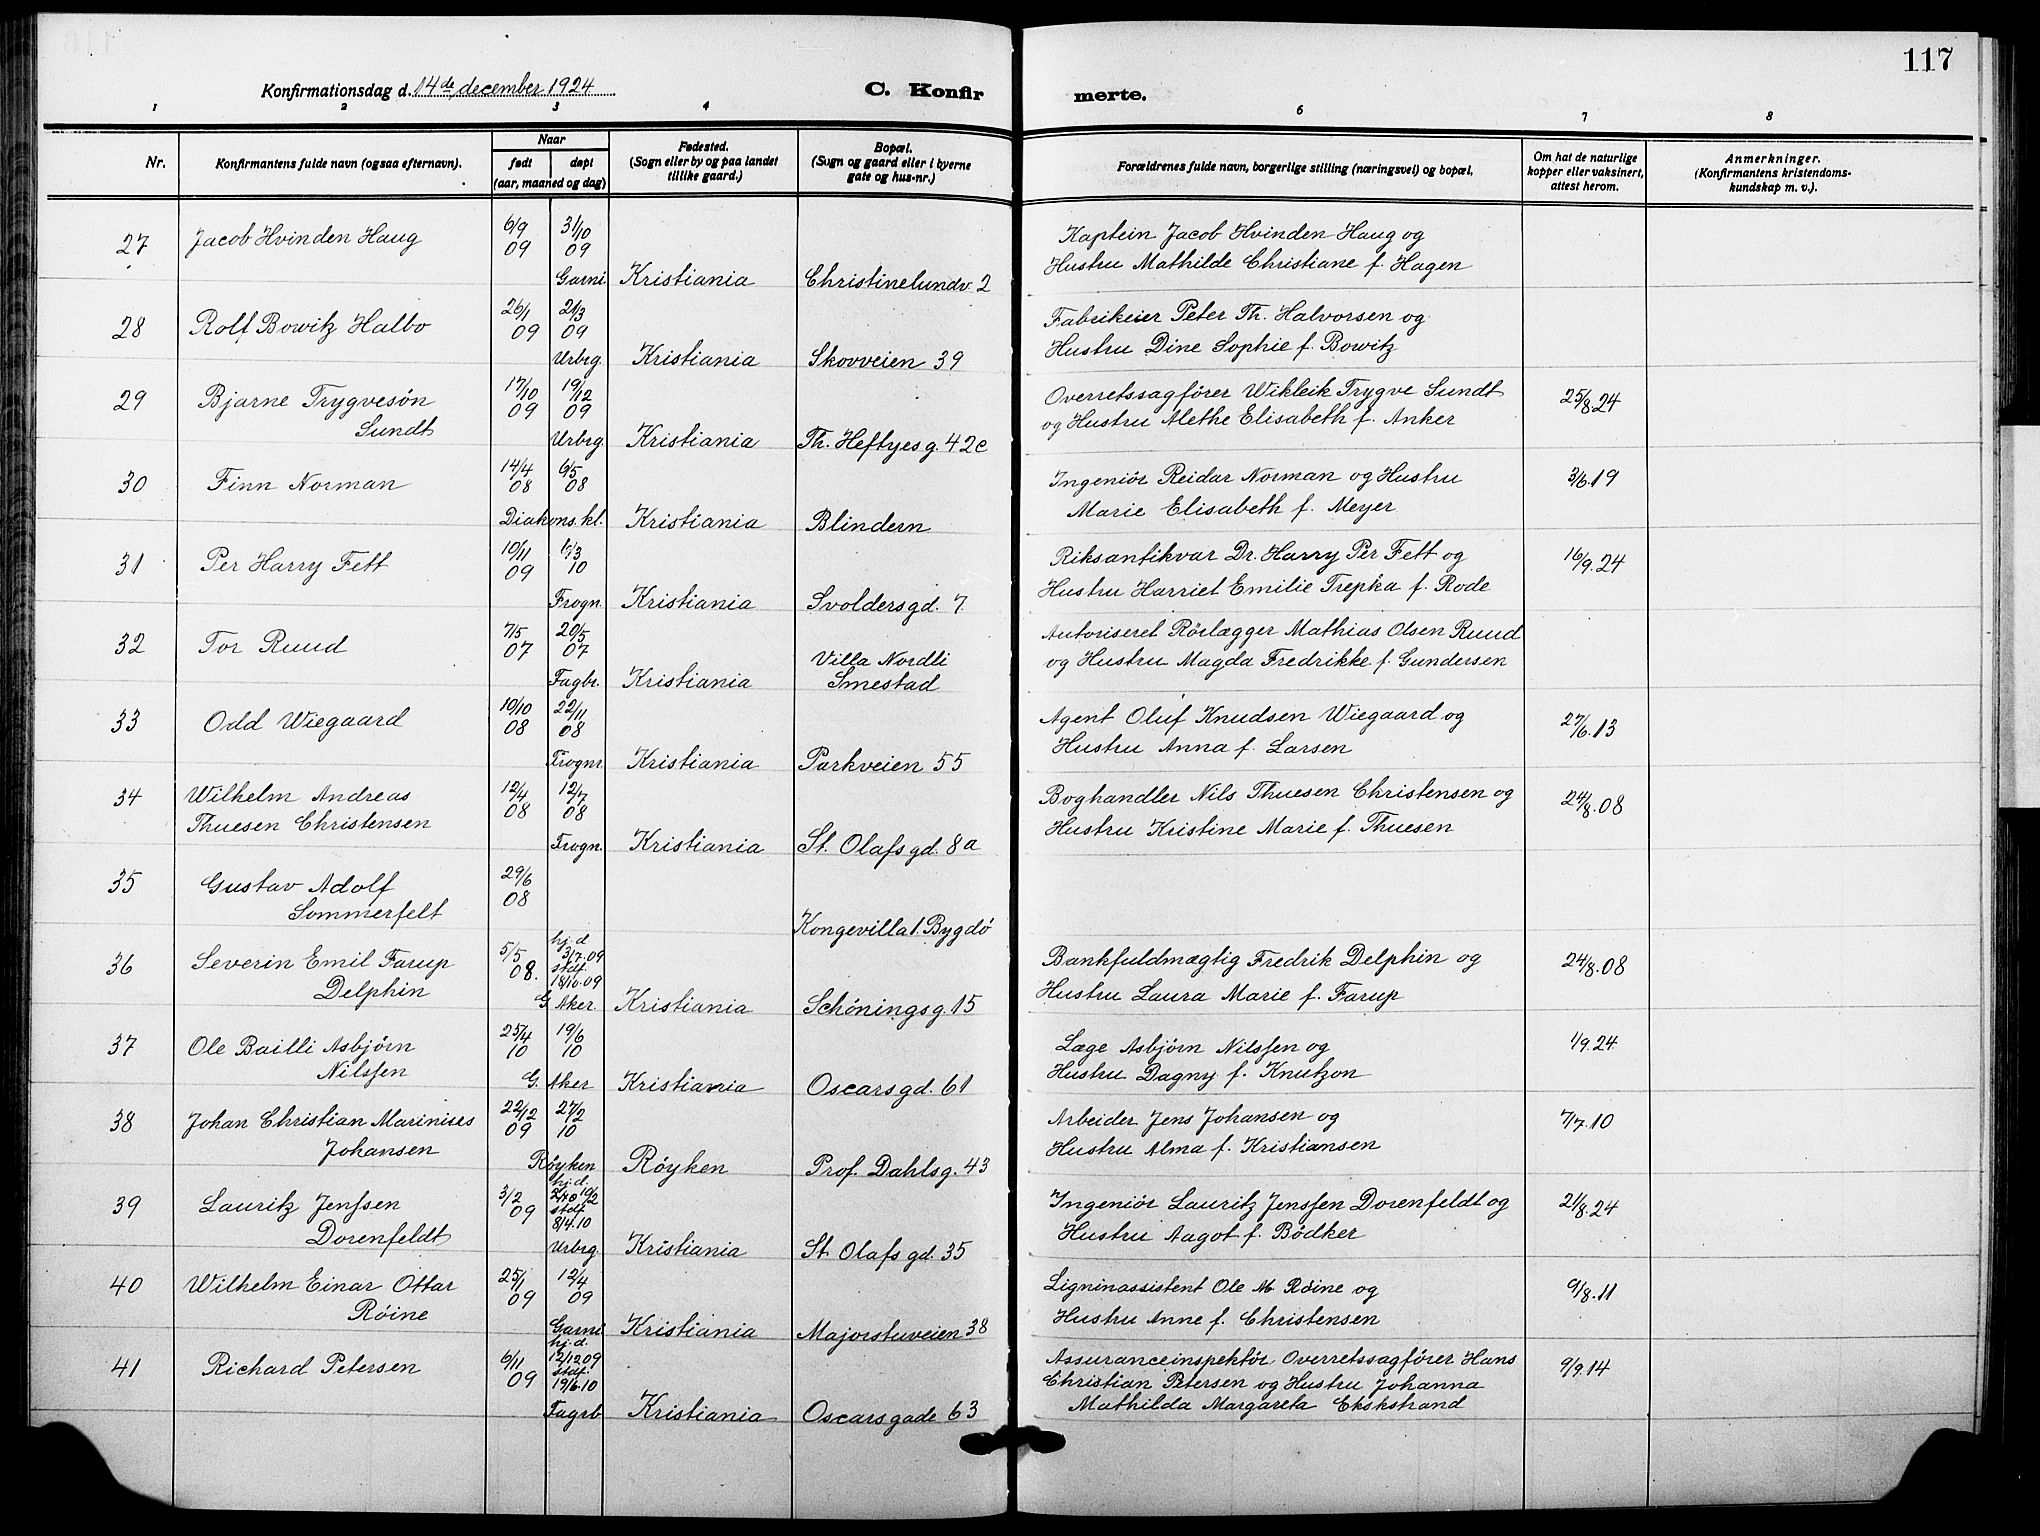 117
Konfirmationsdag d. 14de december 1924
C. Konfir merte.
1 2 3 4 6 7 8
Nr.
Konfirmantens fulde navn (ogsaa efternavn).
Naar
født
døpt
(aar, maaned og dag)
Fødested.
(Sogn eller by og paa landet
tillike gaard.)
Bopæl.
(Sogn og gaard eller i byerne
gate og hus-nr.)
Forældrenes fulde navn, borgerlige stilling (næringsvei) og bopæl.
Om hat de naturlige
kopper eller vaksinert,
attest herom.
Anmerkninger.
(Konfirmantens kristendoms-
kundskap m. v.).
27 Jacob Hvinden Haug 6/9 09 31/10 09 Kaptein Jacob Hvinden Haug og
Garni. Kristiania Christinelundv. 2 Hustru Mathilde Christiane f. Hagen
28 Rolf Bowitz Halbo 26/1 09 21/3 09 Fabrikeier Peter Th. Halvorsen og
Urbrg. Kristiania Skovveien 39 Hustru Dine Sophie f. Bowitz
29 Bjarne Trygvesøn 17/10 09 19/12 09 Overretssagfører Wikleik Trygve Sundt 25/8.24
Sundt Urbrg. Kristiania Th. Heftyes g. 42c og Hustru Alethe Elisabeth f. Anker
30 Finn Norman 14/4 08 6/5 08 Ingeniør Reidar Norman og Hustru 3/6.19
Diakons. kl. Kristiania Blindern Marie Elisabeth f. Meyer
31 Per Harry Fett 10/11 09 /3 10 Riksantikvar Dr. Harry Per Fett og 16/9.24
Frogn. Kristiania Svoldersgd. 7 Hustru Harriet Emilie Trepka f. Rode
32 Tor Ruud 7/5 07 20/5 07 Autoriseret Rørlægger Mathias Olsen Ruud
Villa Nordli og Hustru Magda Fredrikke f. Gundersen
Fagbr. Kristiania Smestad
33 Odd Wiegaard 10/10 08 22/11 08 Agent Oluf Knudsen Wiegaard og 27/6.13
Frognr. Kristiania Parkveien 55 Hustru Anna f. Larsen
34 Wilhelm Andreas 12/4 08 12/7 08 Boghandler Nils Thuesen Christensen og 24/8.08
Thuesen Christensen Frogn. Kristiania St. Olafs gd. 8a Hustru Kristine Marie f. Thuesen
35 Gustav Adolf 29/6 08
Sommerfelt Kongevilla 1. Bygdø
36 Severin Emil Farup 5/5 08. hj.d 3/7.09 stdf. 18/10.09 Bankfuldmægtig Fredrik Delphin og 24/8.08
Delphin G Aker. Kristiania Schøningsg. 15 Hustru Laura Marie f. Farup
37 Ole Bailli Asbjørn 25/4 10 19/6 10 Læge Asbjørn Nilssen og 1/9.24
Nilssen G. Aker Kristiania Oscarsgd. 61 Hustru Dagny f. Knutzon
38 Johan Christian Marinises 22/12 09 27/2 10 Arbeider Jens Johansen og 7/7.10
Johansen Røyken Røyken Prof. Dahlsg. 43 Hustru Alma f. Kristiansen
39 Lauritz Jenssen 3/2 09 hj.d. stdf. 8/4.10 Ingeniør Lauritz Jenssen Dorenfeldt og 21/8.24
Dorenfeldt Urbrg. Kristiania St. Olafs gd. 35 Hustru Aagot f. Bødker
40 Wilhelm Einar Ottar 25/1 09 12/4 09 Ligninassistent Ole M. Røine og 9/8.11
Røine Garni Kristiania Majorstuveien 38 Hustru Anne f. Christensen
41 Richard Petersen 6/11 09 hj.d. 12/12 09 stdf. 19/6.10 Assuranceinspektør, Overretssagfører Hans 9/9.14
Christian Petersen og Hustru Johanna
Fagrb Kristiania Oscarsgade 63 Mathilda Margareta Ekskstrand